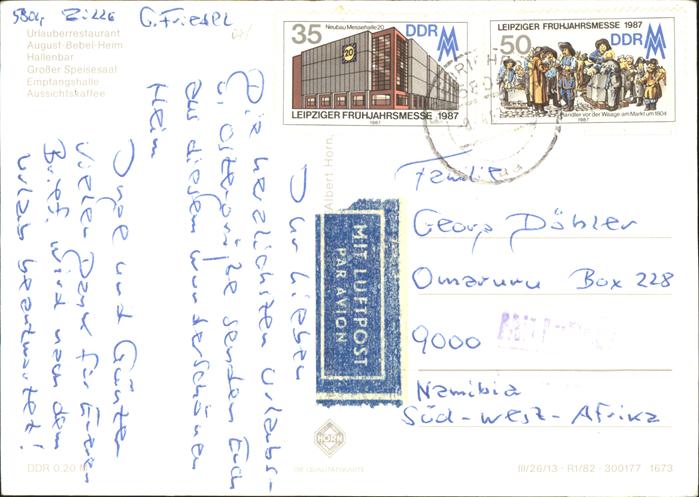 5804 Zilla G. Friedel
Urlauberrestaurant
August-Bebel-Heim
Hallenbar
Großer Speisesaal
Empfangshalle
Aussichtskaffee
35
Neubau Messehalle 20
DDR
20
LEIPZIGER FRÜHJAHRSMESSE 1987
1987
LEIPZIGER FRÜHJAHRSMESSE 1987
50
DDR
Händler vor der Waage am Markt um 1804
1987
Ihr Lieben
Die herzlichsten Urlaubs-
u. Ostergrüße senden Euch
aus diesem wunderschönen
Heim
Inge und Günter
Vielen Dank für Euren
Brief, wird nach dem
Urlaub beantwortet!
Albert Horn,
MIT LUFTPOST
PAR AVION
Familie
Georg Döhler
Omaruru Box 228
9000
Namibia
Süd-West-Afrika
DDR 0,20 M
HORN
DIE QUALITÄTSKARTE
III/26/13 - R1/82 - 300177 1673